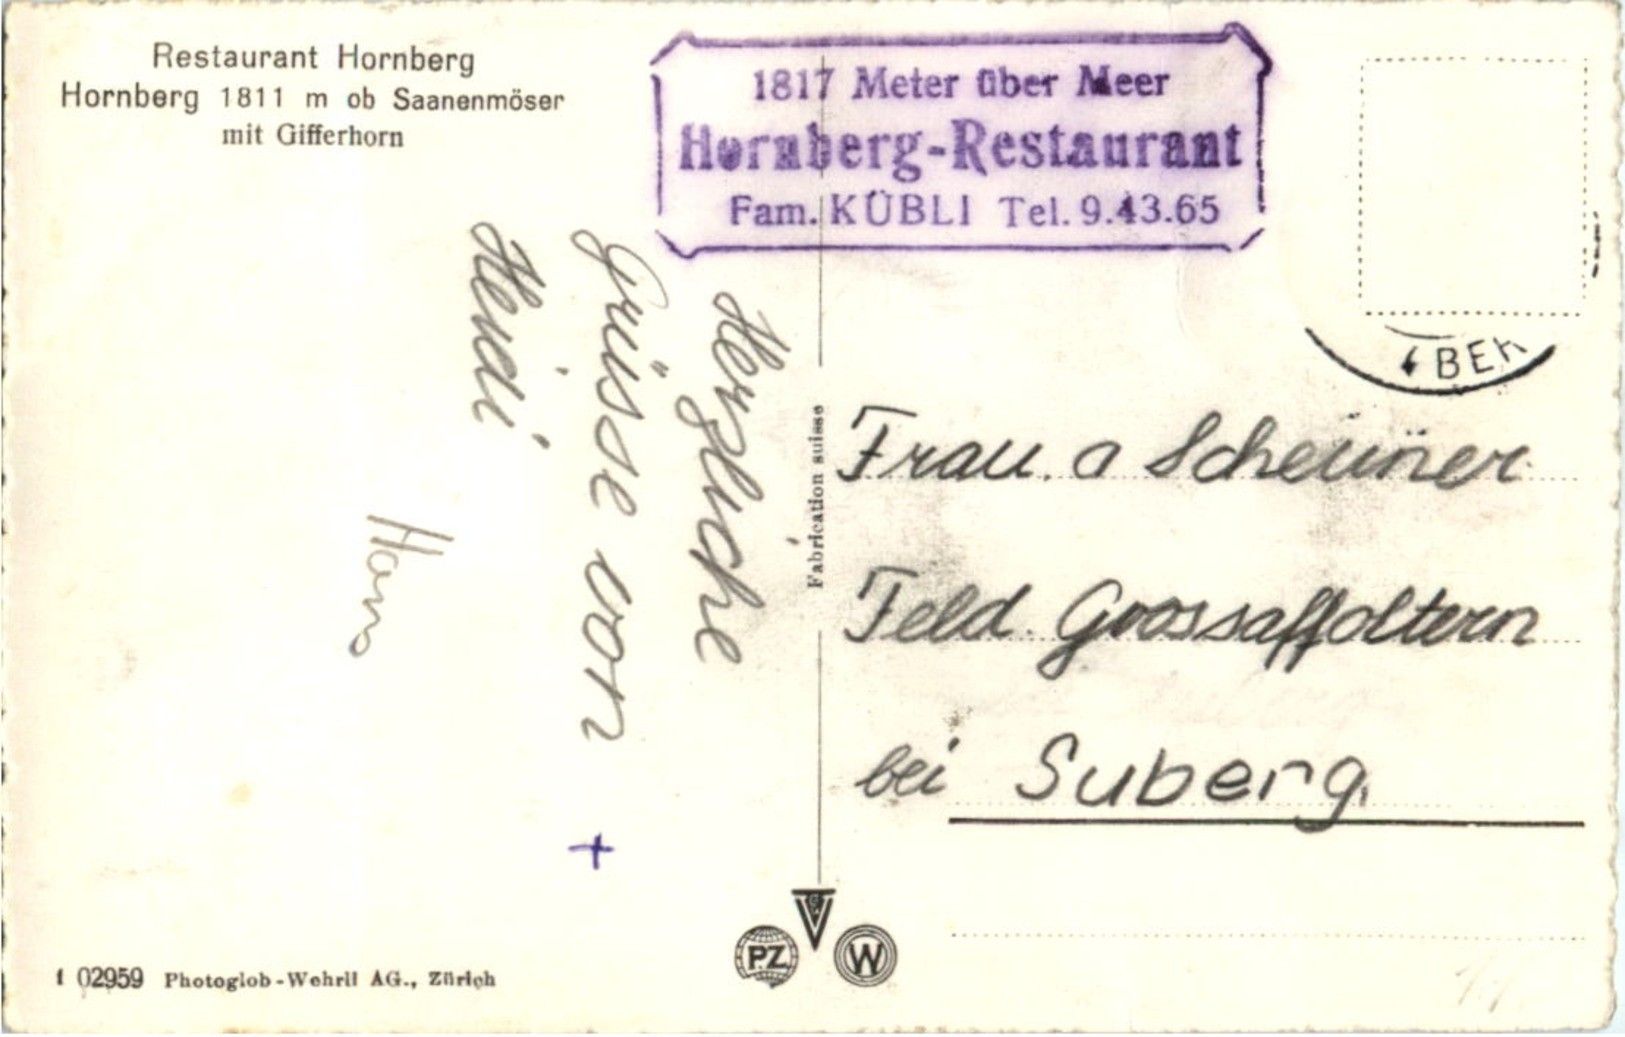 Restaurant Hornberg
Hornberg 1811 m ob Saanenmöser
mit Gifferhorn
1817 Meter über Meer
Hornberg-Restaurant
Fam. KÜBLI Tel. 9.43.65
BER
Herzliche
Grüsse von
Heidi
Hans
Fabrication suisse
Frau. a Scheuner
Feld. Grossaffoltern
bei Suberg.
+
PZ
G
V
W
102959 Photoglob-Wehrli AG., Zürich